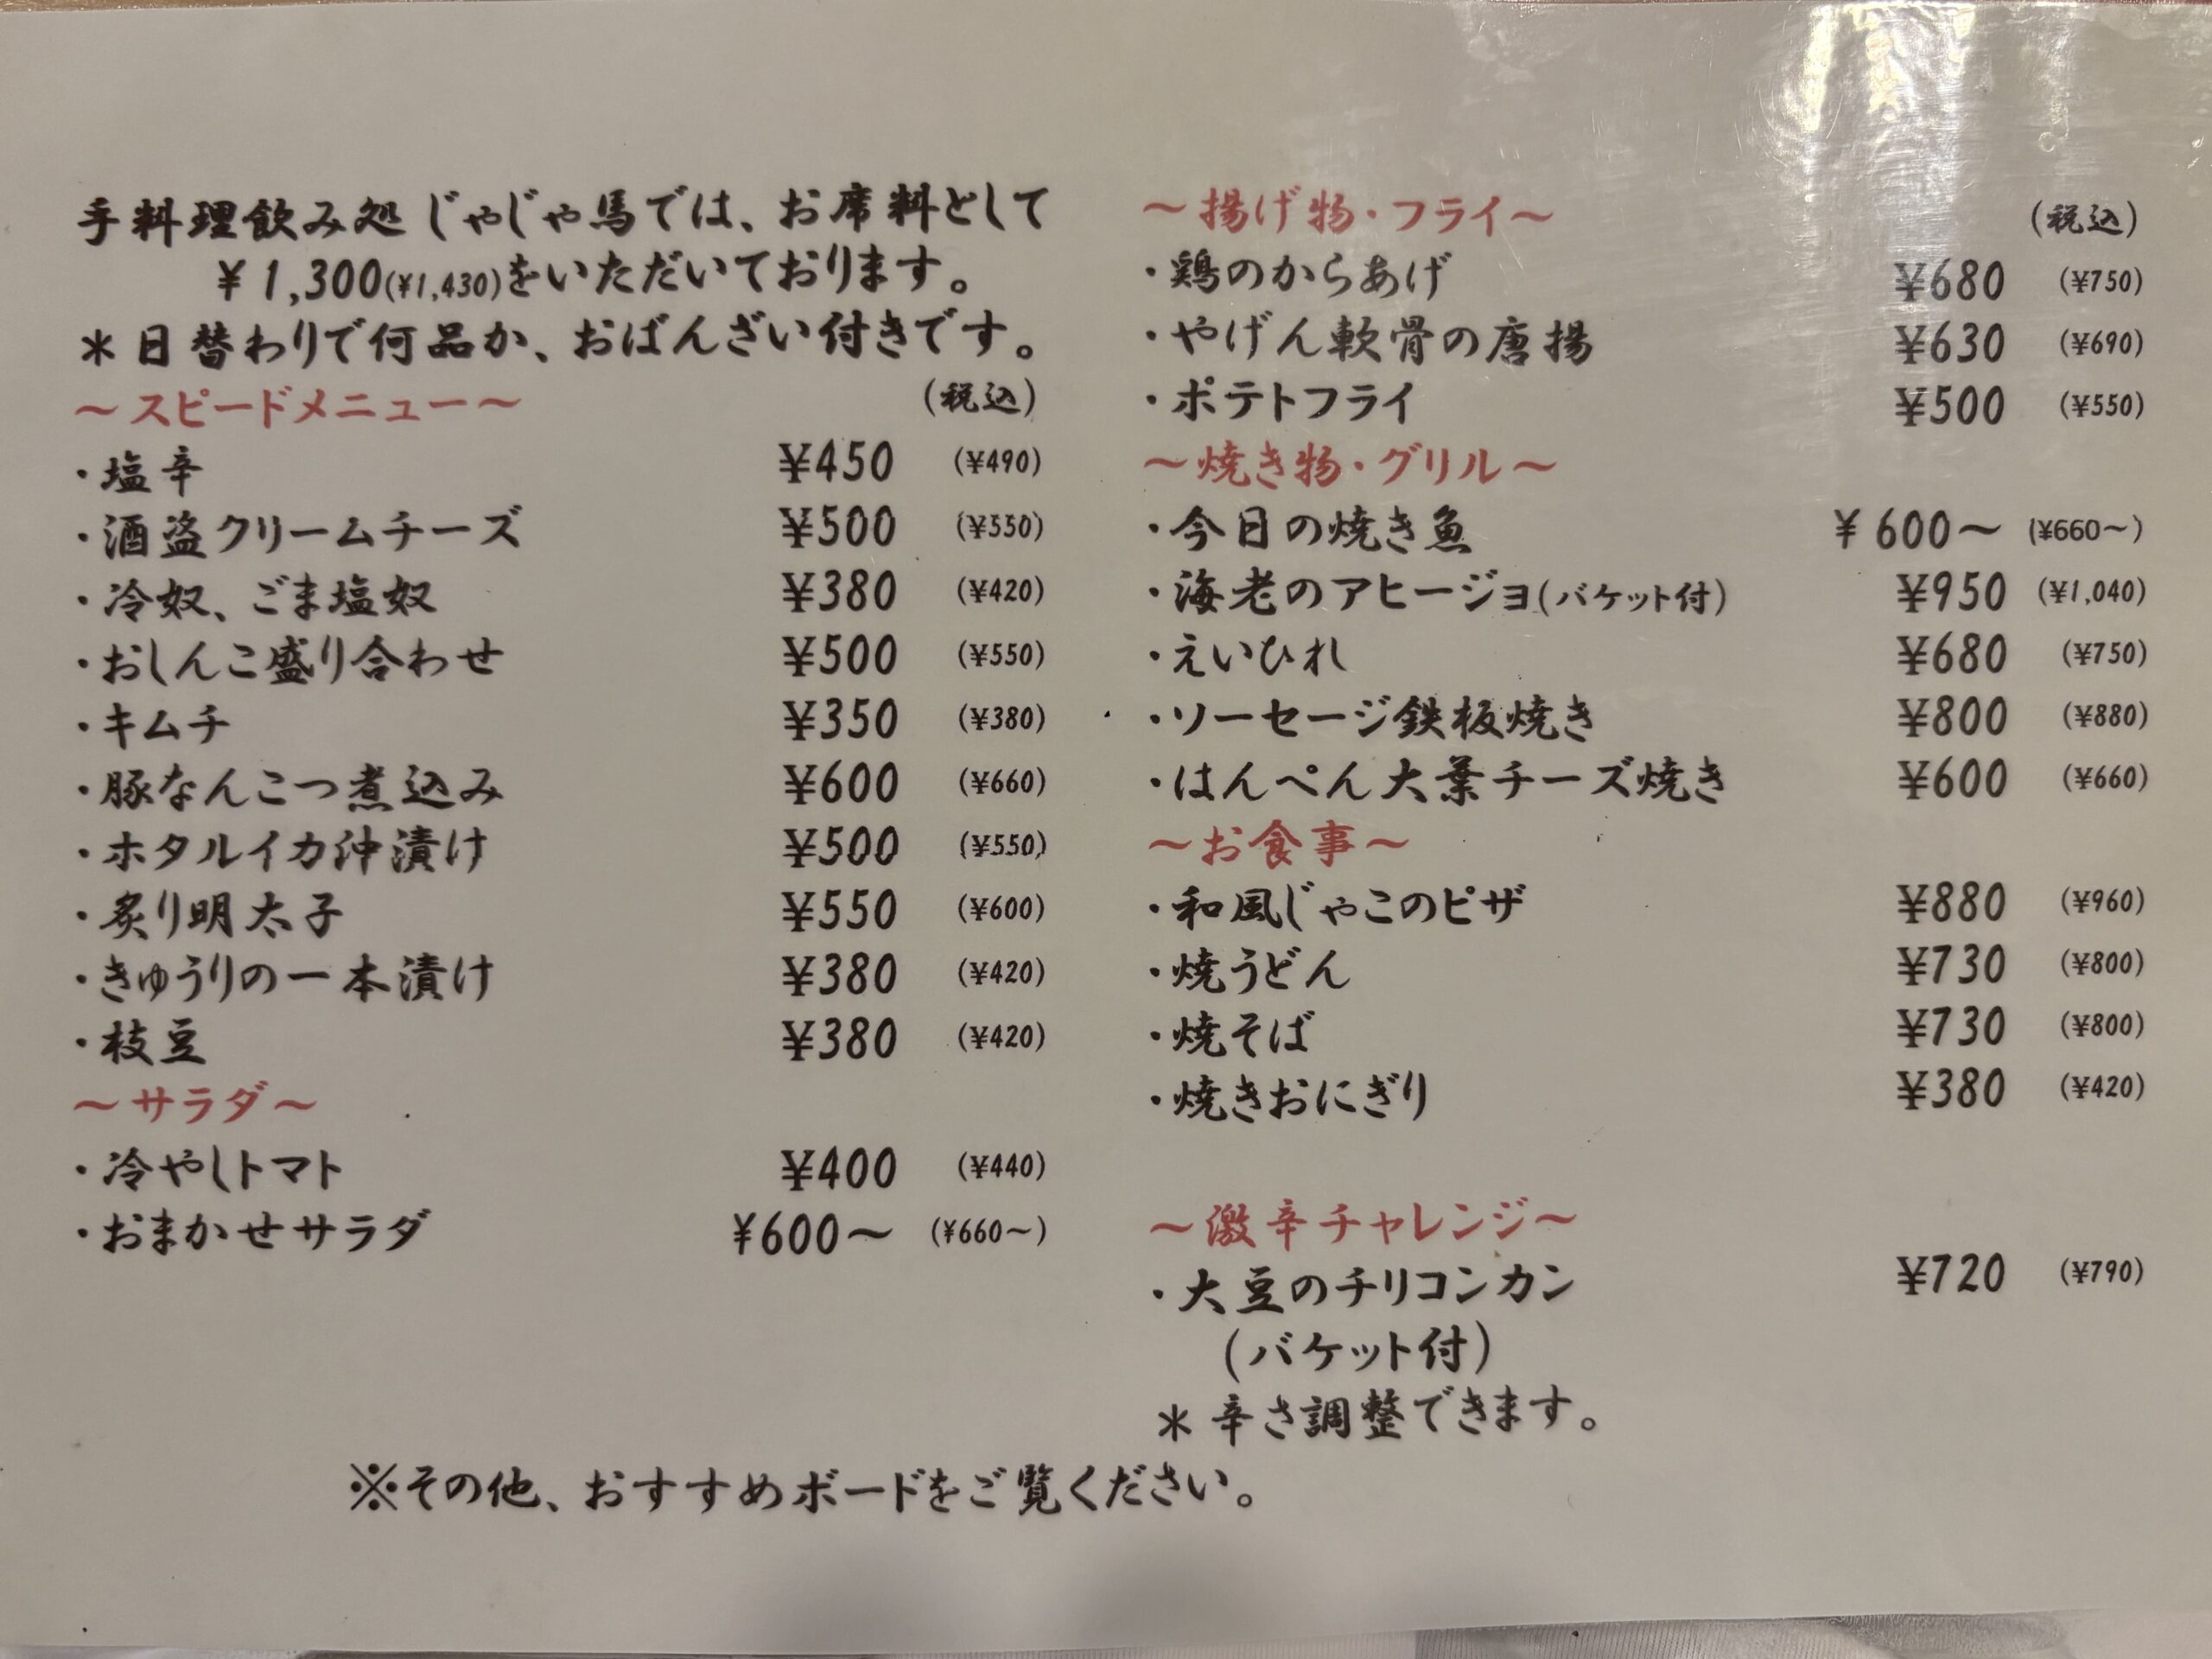 手料理飲み処じゃじゃ馬では、お席料として
¥1,300(¥1,430)をいただいております。
＊日替わりで何品か、おばんざい付きです。
～スピードメニュー～ (税込)
・塩辛 ¥450 (¥490)
・酒盗クリームチーズ ¥500 (¥550)
・冷奴、ごま塩奴 ¥380 (¥420)
・おしんこ盛り合わせ ¥500 (¥550)
・キムチ ¥350 (¥380)
・豚なんこつ煮込み ¥600 (¥660)
・ホタルイカ沖漬け ¥500 (¥550)
・炙り明太子 ¥550 (¥600)
・きゅうりの一本漬け ¥380 (¥420)
・枝豆 ¥380 (¥420)
～サラダ～
・冷やしトマト ¥400 (¥440)
・おまかせサラダ ¥600～ (¥660～)
～揚げ物・フライ～ (税込)
・鶏のからあげ ¥680 (¥750)
・やげん軟骨の唐揚 ¥630 (¥690)
・ポテトフライ ¥500 (¥550)
～焼き物・グリル～
・今日の焼き魚 ¥600～ (¥660～)
・海老のアヒージョ(バケット付) ¥950 (¥1,040)
・えいひれ ¥680 (¥750)
・ソーセージ鉄板焼き ¥800 (¥880)
・はんぺん大葉チーズ焼き ¥600 (¥660)
～お食事～
・和風じゃこのピザ ¥880 (¥960)
・焼うどん ¥730 (¥800)
・焼そば ¥730 (¥800)
・焼きおにぎり ¥380 (¥420)
～激辛チャレンジ～
・大豆のチリコンカン ¥720 (¥790)
(バケット付)
＊辛さ調整できます。
※その他、おすすめボードをご覧ください。